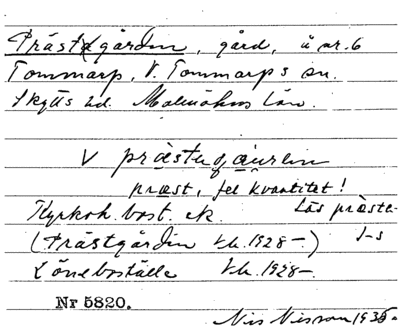 Prästgården, gård, å nr. 6
Tommarp, V. Tommarps sn.
Skytts hd. Malmöhus län.
V prästegåuren
præst, fel kvantitet!
Kyrkoh. bost. ek. Läs präste-
(Prästgården kb. 1928-)
Löneboställe kb. 1928-.
Nr 5820.
Nils Nilsson 1935.